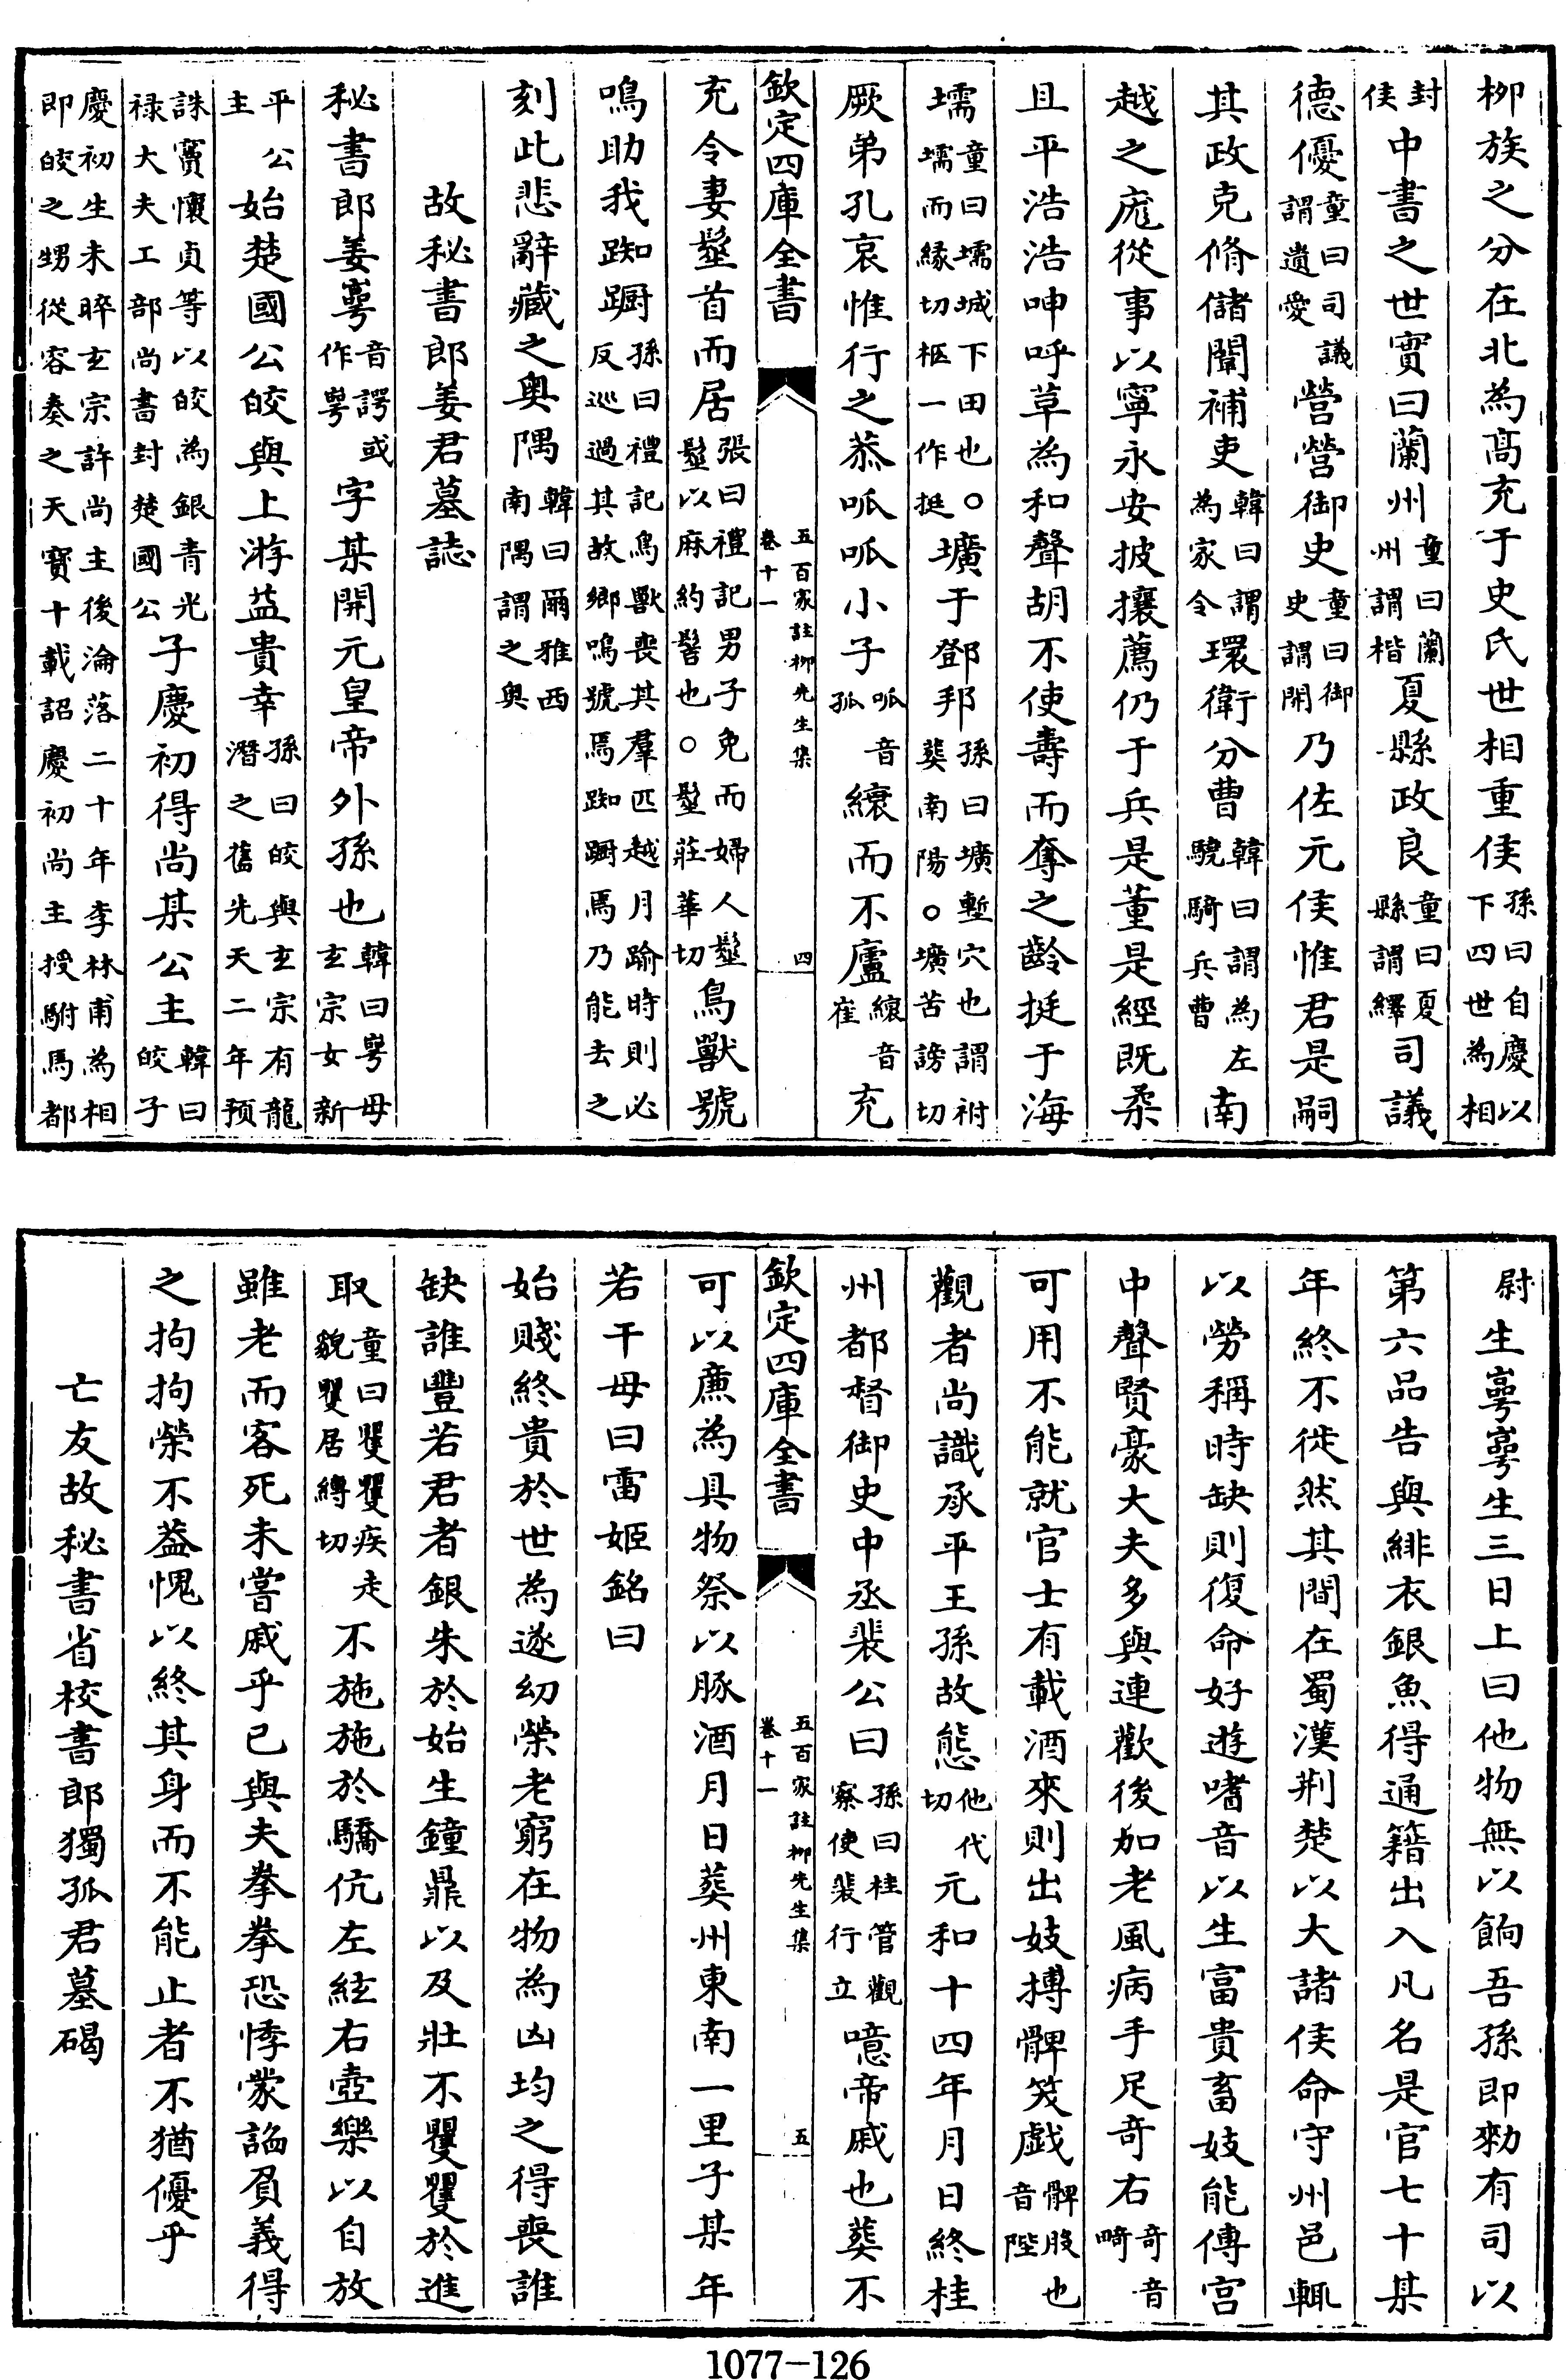 柳族之分在北為髙充于史氏世相重侯孫曰自慶以下四世為相
封侯中書之世實曰蘭州童曰蘭州謂楷夏縣政良童曰夏縣謂繹司議
德優童曰司議謂遺愛營營御史童曰御史謂開乃佐元侯惟君是嗣
其政克脩儲闈補吏韓曰謂為家令環衛分曹韓曰謂為左驍騎兵曹南
越之厖從事以寧永安披攘薦仍于兵是董是經既柔
且平浩浩呻呼草為和聲胡不使壽而奪之齡挺于海
壖童曰壖城下田也○壖而縁切柩一作挺壙于鄧邦孫曰壙塹穴也謂祔葬南陽○壙苦謗切
厥弟孔哀惟行之恭呱呱小子呱音孤縗而不廬縗音崔充
欽定四庫全書 五百家註柳先生集 卷十一 四
充令妻髽首而居張曰禮記男子免而婦人髽髽以麻約髻也○髽莊華切鳥獸號
鳴助我踟蹰孫曰禮記鳥獸喪其羣匹越月踰時則必反巡過其故鄉鳴號焉踟蹰焉乃能去之
刻此悲辭藏之奥隅韓曰爾雅西南隅謂之奥
故秘書郎姜君墓誌
秘書郎姜㟧音諤或作㖾字某開元皇帝外孫也韓曰㖾母玄宗女新
平公主始楚國公皎與上游益貴幸孫曰皎與玄宗有龍潛之舊先天二年預
誅竇懷貞等以皎為銀青光禄大夫工部尚書封楚國公子慶初得尚某公主韓曰皎子
慶初生未晬玄宗許尚主後淪落二十年李林甫為相即皎之甥從容奏之天寳十載詔慶初尚主授駙馬都
尉生㟧㟧生三日上曰他物無以餉吾孫即勑有司以
第六品告與緋衣銀魚得通籍出入凡名是官七十某
年終不徙然其間在蜀漢荆楚以大諸侯命守州邑輒
以勞稱時缺則復命好遊嗜音以生富貴畜妓能傳宫
中聲賢豪大夫多與連歡後加老風病手足奇右奇音畸
可用不能就官士有載酒來則出妓搏髀笑戲髀股也音陛
觀者尚識承平王孫故態他代切元和十四年月日終桂
州都督御史中丞裴公曰孫曰桂管觀察使裴行立噫帝戚也葬不
欽定四庫全書 五百家註柳先生集 卷十一 五
可以廉為具物祭以豚酒月日葬州東南一里子某年
若干母曰雷姬銘曰
始賤終貴於世為遂幼榮老窮在物為凶均之得喪誰
缺誰豐若君者銀朱於始生鐘鼎以及壯不矍矍於進
取童曰矍矍疾走貌矍居縛切不施施於驕伉左絃右壺樂以自放
雖老而客死未嘗戚乎已與夫拳拳恐悸蒙謟負義得
之拘拘榮不葢愧以終其身而不能止者不猶優乎
亡友故秘書省校書郎獨孤君墓碣
1077-126